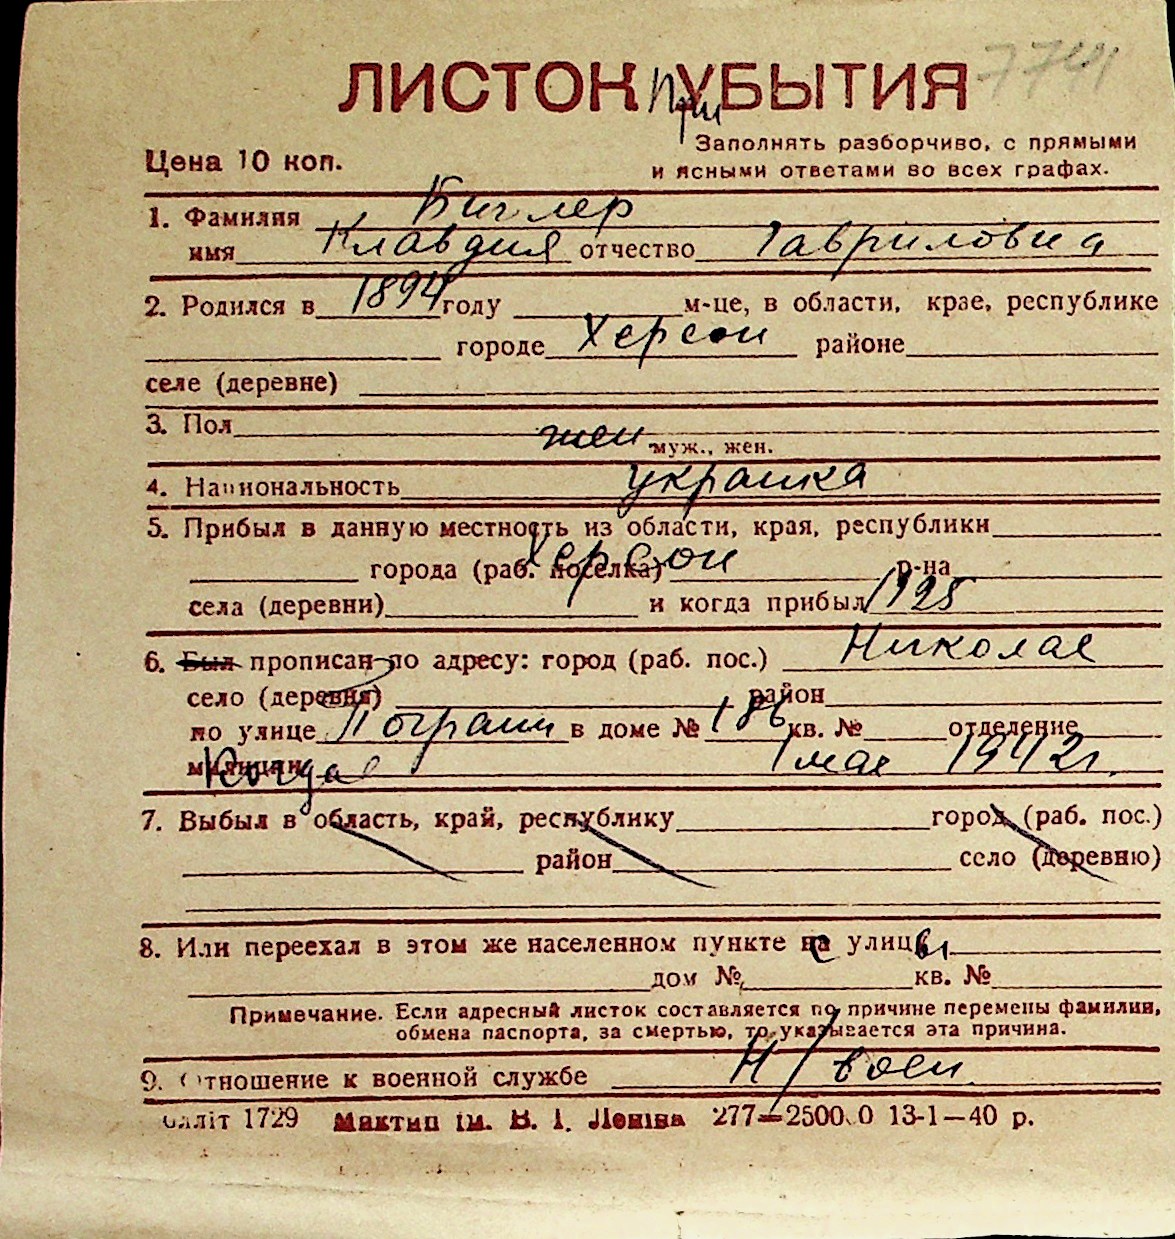 ЛИСТОК при УБЫТИЯ 7741
Цена 10 коп.
Заполнять разборчиво, с прямыми
и ясными ответами во всех графах.
1. Фамилия Биглер
имя Клавдия отчество Гавриловна
2. Родился в 1894 году м-це, в области, крае, республике
городе Херсон районе
селе (деревне)
3. Пол жен
муж., жен.
4. Национальность украинка
5. Прибыл в данную местность из области, края, республики
города (раб. поселка) Херсон р-на
села (деревни) и когда прибыл 1925
6. Был прописан по адресу: город (раб. пос.) Николае
село (деревня) район
по улице Погранич в доме № 186 кв. № отделение
милиции Когда 1 мая 1942 г.
7. Выбыл в область, край, республику город (раб. пос.)
район село (деревню)
8. Или переехал в этом же населенном пункте с улицы
дом № кв. №
Примечание. Если адресный листок составляется по причине перемены фамилии,
обмена паспорта, за смертью, то указывается эта причина.
9. Отношение к военной службе Н/воен.
1729 Мактип ім. В. І. Леніна 277—2500.0 13-1—40 р.